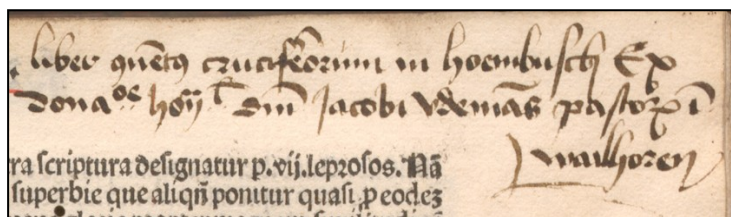 liber quēt9 cruciferorum in hoembusch Ex
donaoe hoīs dm̄ Jacobi Vdemās pastor ī
walhoren
ra scriptura designatur p. vij. leprosos. Nā
superbie que aliqñ ponitur quasi p eodez